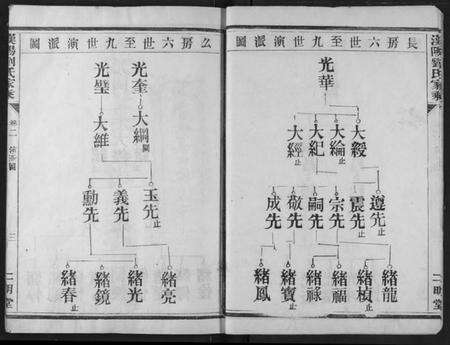 漢陽劉氏家乘
長房六世至九世演派圖
光華
大綬
大綸止
大紀
大經止
遵先止
震先止
宗先
嗣先
敬先
成先
緒龍
緒楨止
緒福
緒祿
緒寶止
緒鳳
二明堂
么房六世至九世演派圖
光奎
光璧
大綱
大維
玉先止
義先
勳先
緒亮
緒光
緒鏡
緒春止
漢陽劉氏家乘
卷二
三
二明堂